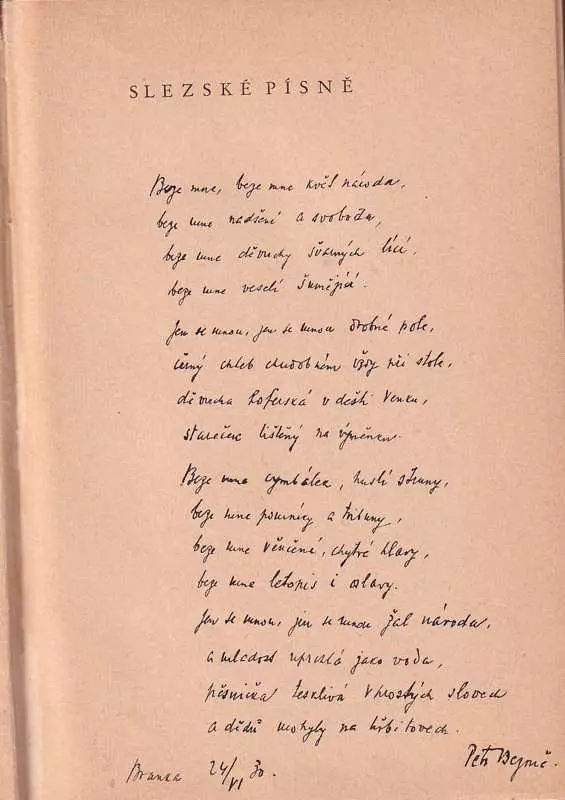 SLEZSKÉ PÍSNĚ
Beze mne, beze mne květ národa,
beze mne nadšení a svoboda,
beze mne děvuchy švarných lící.
beze mne veselí šumějící.
Jen se mnou, jen se mnou drobné pole,
černý chleb chudobném vždy při stole,
děvucha koferská v dešti venku,
stareček lištěný na výměnku.
Beze mne cymbálek, huslí struny,
beze mne pomníky a tribuny,
beze mne věnčené, chytré hlavy,
beze mne letopis i oslavy.
Jen se mnou, jen se mnou žal národa,
a mladost uprchlá jako voda,
pěsnička tesklivá v hroských slovech
a dědů mohyly na hřbitovech.
Petr Bezruč.
Branka 24/VI 30.